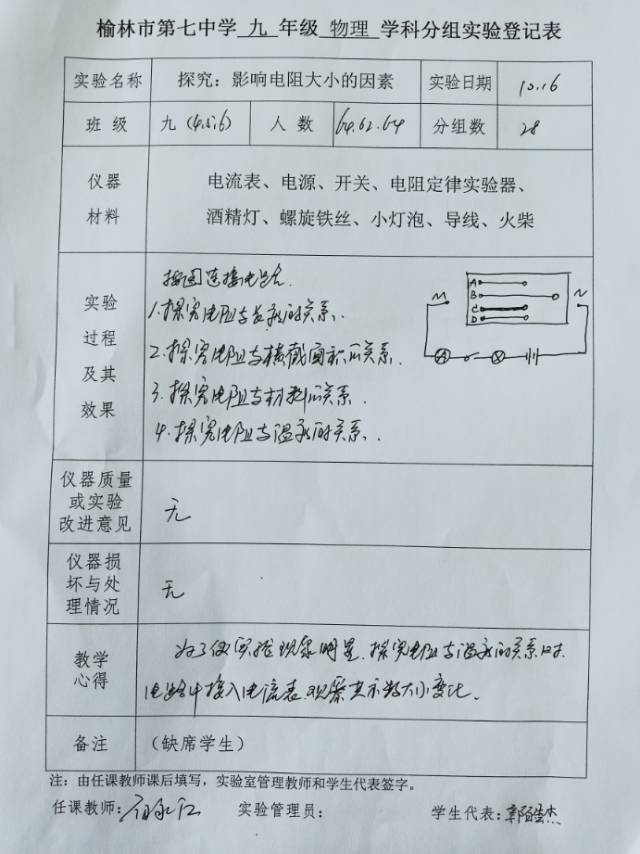 榆林市第七中学 九 年级 物理 学科分组实验登记表
实验名称 探究：影响电阻大小的因素 实验日期 10.16
班级 九（4.5.6） 人数 64.62.64 分组数 28
仪器
材料
电流表、电源、开关、电阻定律实验器、
酒精灯、螺旋铁丝、小灯泡、导线、火柴
实验
过程
及其
效果
按图连接电路.
1.探究电阻与长度的关系.
2.探究电阻与横截面积的关系.
3.探究电阻与材料的关系.
4.探究电阻与温度的关系.
A
B
C
D
M
N
A
仪器质量
或实验
改进意见
无
仪器损
坏与处
理情况
无
教学
心得
为了使实验现象明显,探究电阻与温度的关系时,
电路中接入电流表,观察其示数大小变化.
备注 （缺席学生）
注：由任课教师课后填写，实验室管理教师和学生代表签字。
任课教师: 实验管理员: 学生代表: